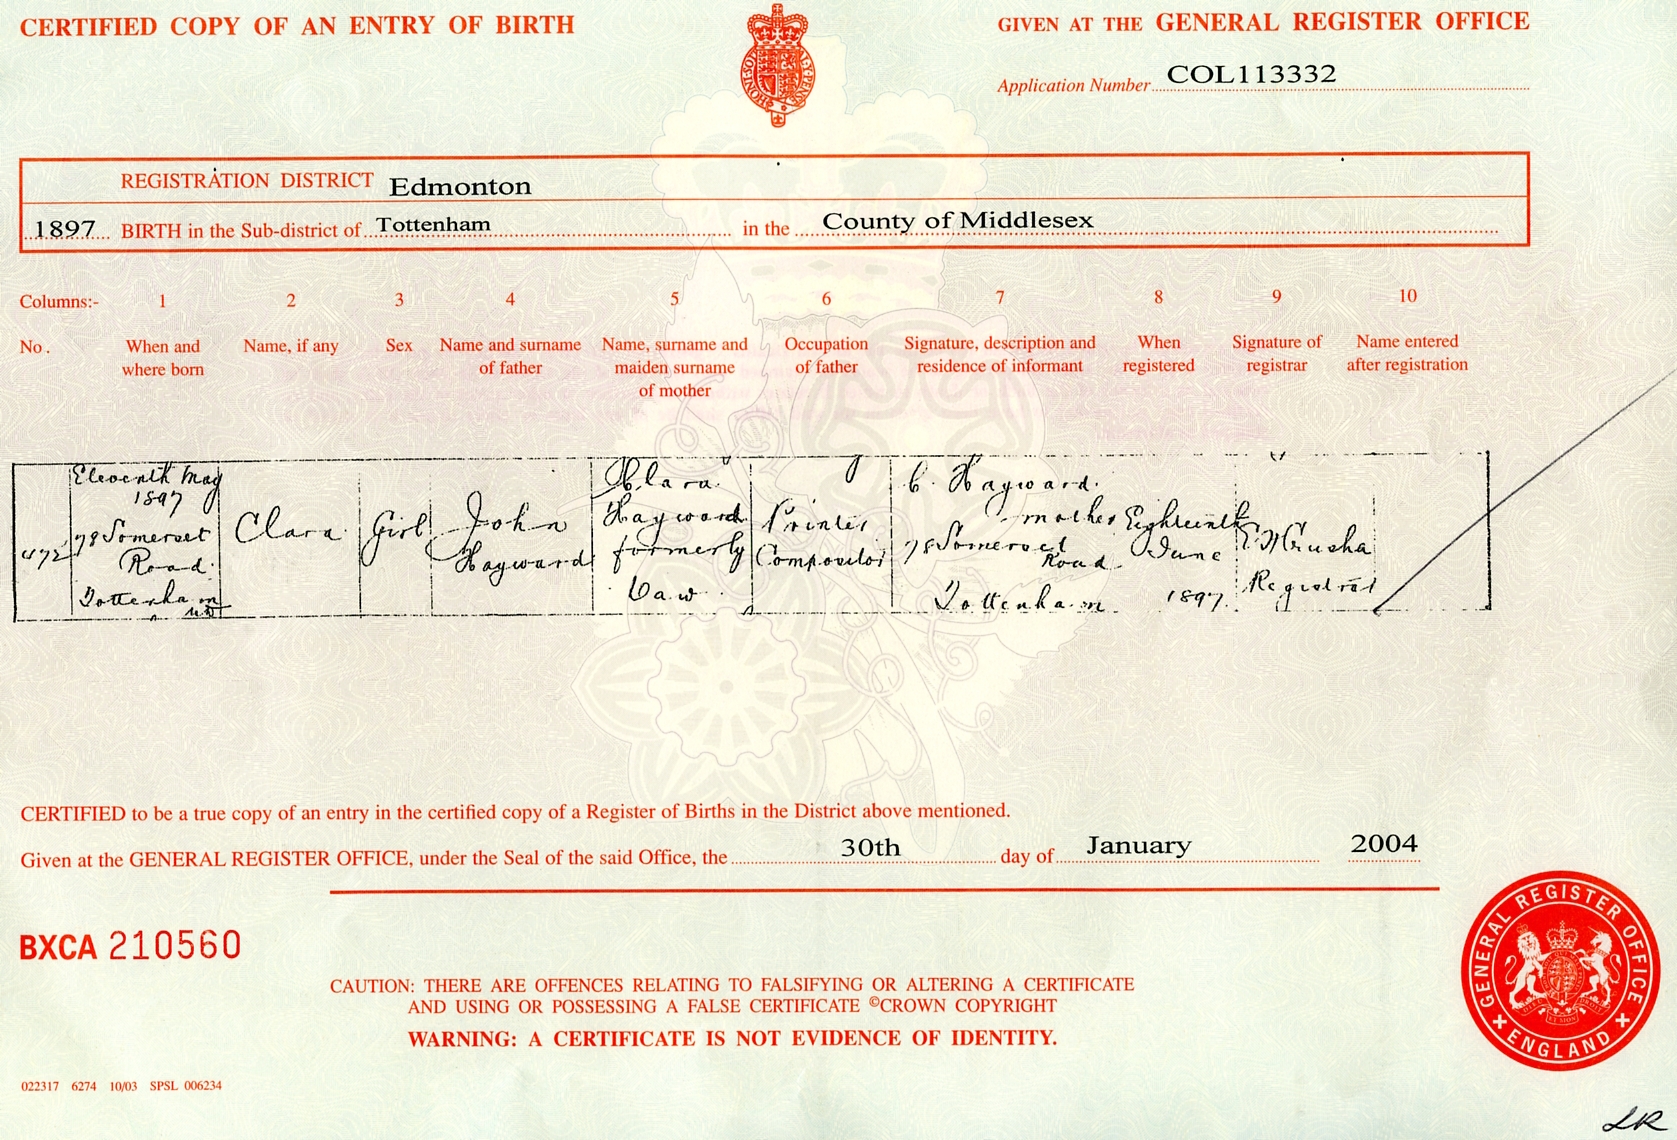 CERTIFIED COPY OF AN ENTRY OF BIRTH
GIVEN AT THE GENERAL REGISTER OFFICE
Application Number COL113332
REGISTRATION DISTRICT Edmonton
1897 BIRTH in the Sub-district of Tottenham in the County of Middlesex
Columns:- 1 2 3 4 5 6 7 8 9 10
No. When and where born Name, if any Sex Name and surname of father Name, surname and maiden surname of mother Occupation of father Signature, description and residence of informant When registered Signature of registrar Name entered after registration
472
Eleventh May
1897
78 Somerset
Road
Tottenham
Clara
Girl
John
Hayward
Clara
Hayward
formerly
Printer
Compositor
C. Hayward
mother
78 Somerset
Road
Tottenham
Eighteenth
June
1897
Registrar
CERTIFIED to be a true copy of an entry in the certified copy of a Register of Births in the District above mentioned.
Given at the GENERAL REGISTER OFFICE, under the Seal of the said Office, the 30th day of January 2004
BXCA 210560
CAUTION: THERE ARE OFFENCES RELATING TO FALSIFYING OR ALTERING A CERTIFICATE
AND USING OR POSSESSING A FALSE CERTIFICATE ©CROWN COPYRIGHT
WARNING: A CERTIFICATE IS NOT EVIDENCE OF IDENTITY.
GENERAL REGISTER OFFICE
ENGLAND
022317 6274 10/03 SPSL 006234
LR